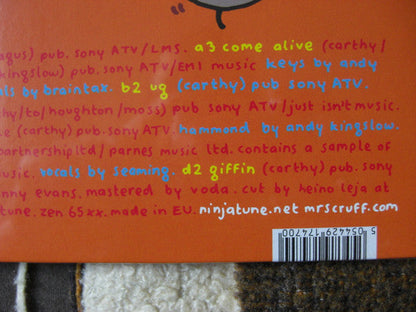 agus) pub. sony ATV/LMS. a3 come alive (carthy/
kingslow) pub. sony ATV/EMI music keys by andy
als by braintax. b2 ug (carthy) pub sony ATV.
hy/to/houghton/moss) pub sony ATV/just isn't music.
e (carthy) pub. sony ATV. hammond by andy kingslow.
partnership ltd/parnes music ltd. contains a sample of
usic. vocals by seeming. d2 giffin (carthy) pub. sony
nny evans. mastered by voda. cut by heino leja at
tune. zen 65xx. made in EU. ninjatune.net mrscruff.com
5 054429 174700